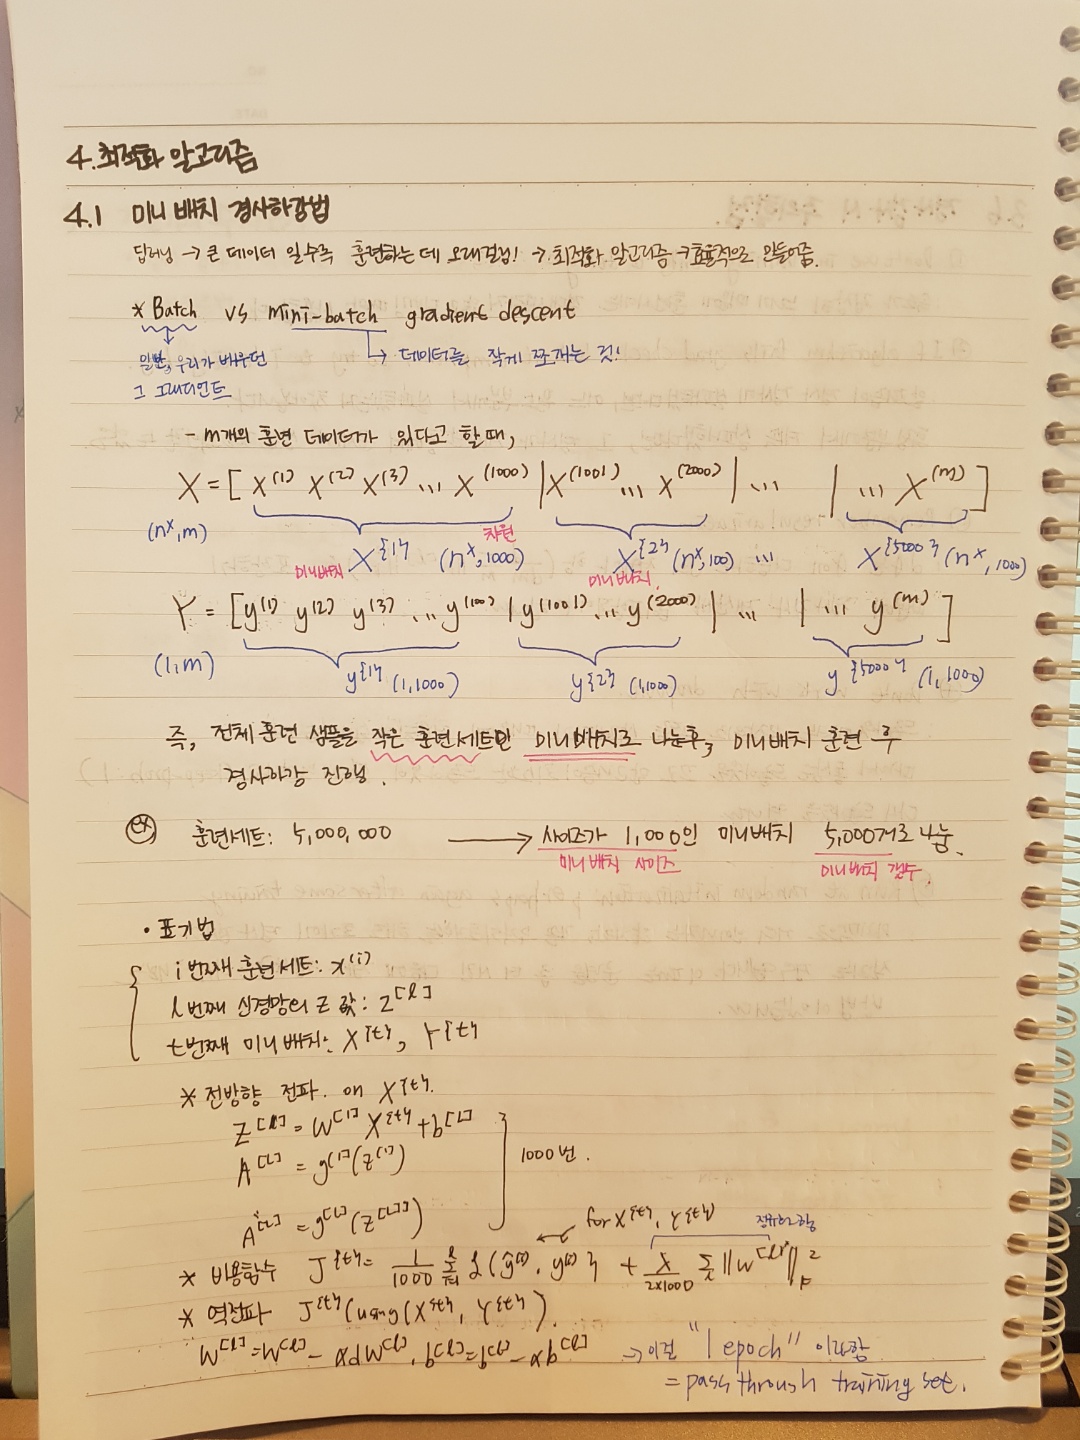 4. 최적화 알고리즘
4.1 미니 배치 경사하강법
딥러닝 → 큰 데이터 일수록 훈련하는 데 오래걸림! → 최적화 알고리즘 → 효율적으로 만들어줌.
* Batch vs mini-batch gradient descent
일반, 우리가 배우던 → 데이터를 작게 쪼개는 것!
그 그래디언트
- m개의 훈련 데이터가 있다고 할 때,
X = [ x^(1) x^(2) x^(3) ... x^(1000) | x^(1001) ... x^(2000) | ... | ... x^(m) ]
(n^x, m) 차원
미니배치 X^{1} (n^x, 1000) X^{2} (n^x, 100) ... X^{5000} (n^x, 1000)
미니배치
Y = [ y^(1) y^(2) y^(3) ... y^(100) | y^(1001) ... y^(2000) | ... | ... y^(m) ]
(1, m) y^{1} (1, 1000) y^{2} (1, 1000) y^{5000} (1, 1000)
즉, 전체 훈련 샘플을 작은 훈련세트인 미니배치로 나눈후, 미니배치 훈련 후
경사하강 진행.
ex 훈련세트: 5,000,000 → 사이즈가 1,000인 미니배치 5,000개로 나눔.
미니배치 사이즈 미니배치 갯수.
• 표기법
i번째 훈련세트: x^(i)
l번째 신경망의 z 값: z^[l]
t번째 미니배치: X^{t}, Y^{t}
* 전방향 전파. on X^{t}
Z^[1] = W^[1] X^{t} + b^[1]
A^[1] = g^[1](z^[1]) 1000번.
A^[L] = g^[L](z^[L])
← for X^{t}, Y^{t}
* 비용함수 J^{t} = 1/1000 Σ L(ŷ^(i), y^(i)) + λ/2x1000 Σ||W^[l]||²_F
* 역전파 J^{t} (using (X^{t}, Y^{t}).
W^[l] = W^[l] - αdW^[l], b^[l] = b^[l] - αb^[l] → 이걸 "1 epoch" 이라함
= pass through training set.